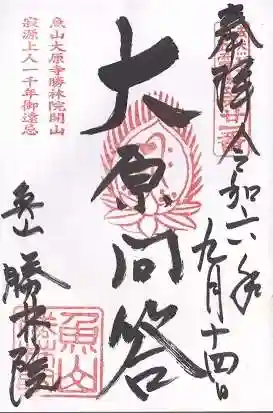 奉拝
令和六年九月十四日
大原問答
魚山大原寺勝林院開山
寂源上人一千年御遠忌
魚山
勝林院
魚山